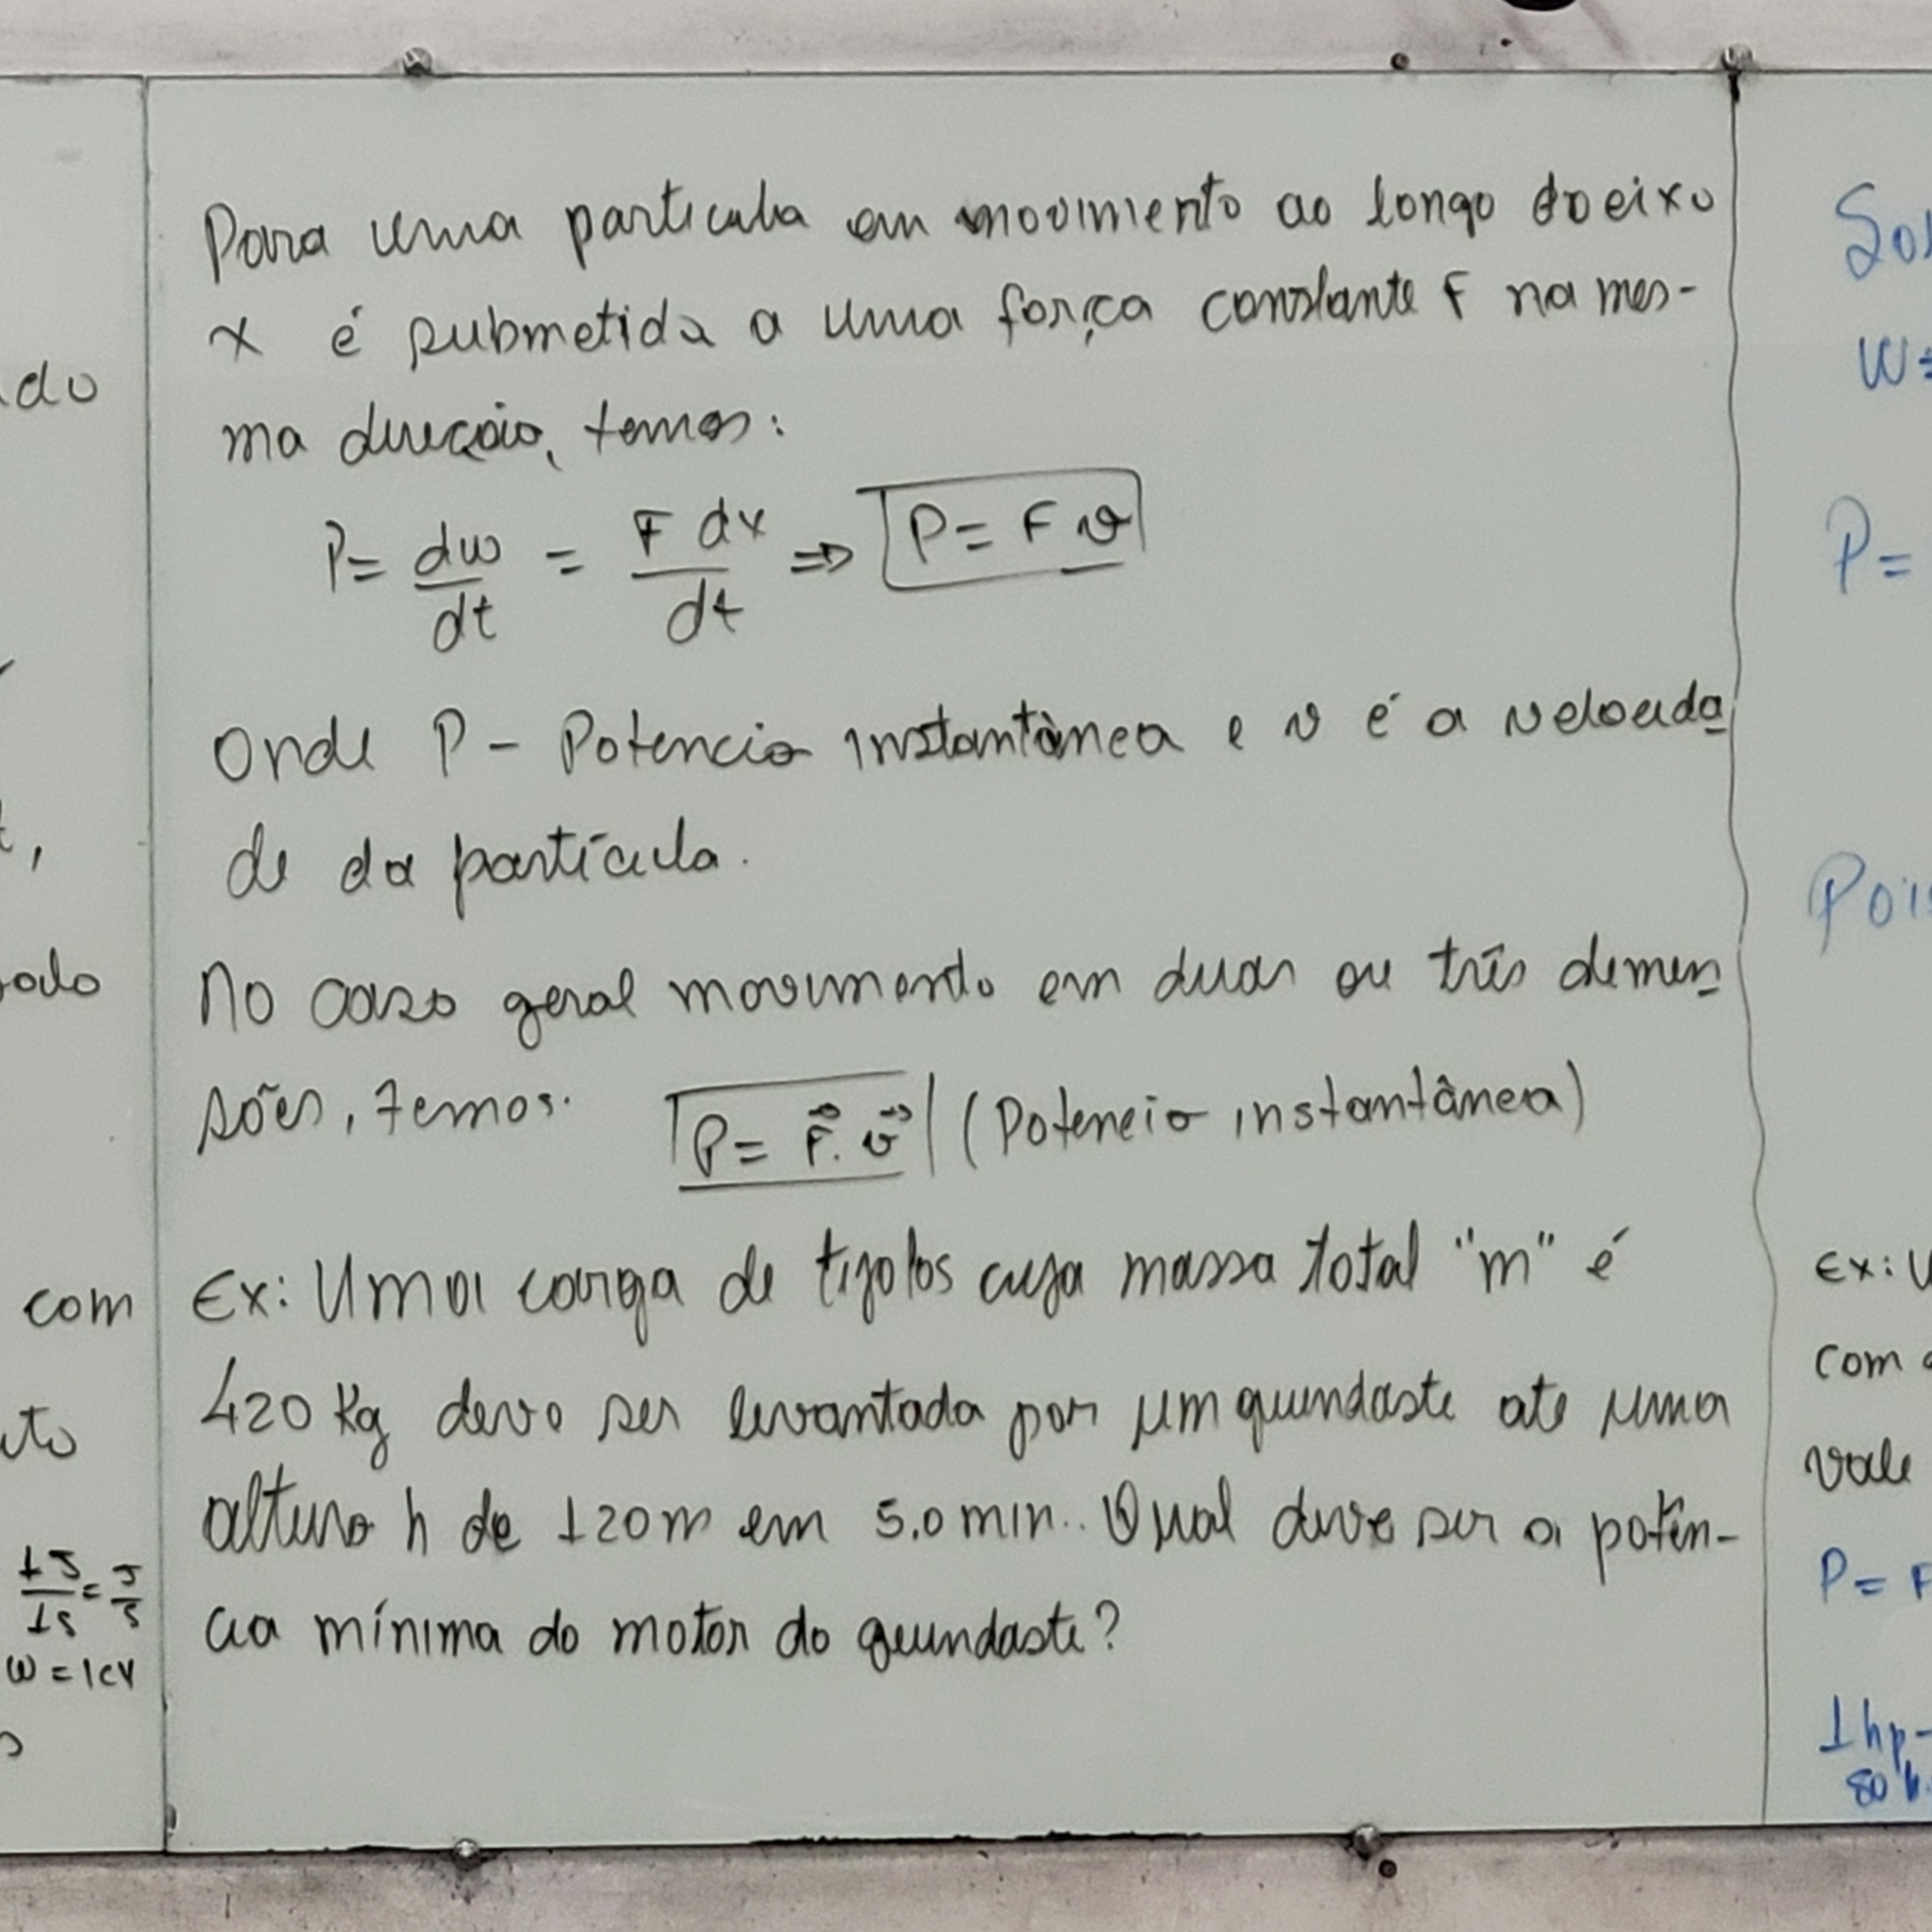 Para uma particula em movimento ao longo do eixo
x é submetida a uma força constante F na mes-
ma direção, temos:
P = dw/dt = F dx/dt ⇒ P = F v
Onde P - Potencia instantânea e v é a velocida
de da partícula.
No caso geral movimento em duas ou três dimen
sões, temos: P = F⃗ . v⃗ (Potencia instantânea)
Ex: Uma carga de tijolos cuja massa total "m" é
420 Kg deve ser levantada por um guindaste ate uma
altura h de 120m em 5.0 min.. Qual deve ser a potên-
cia mínima do motor do guindaste?
do
t,
com
1J/1s = J/s
W = 1cv
W =
P =
Ex: U
com
vale
P = F
1 hp -